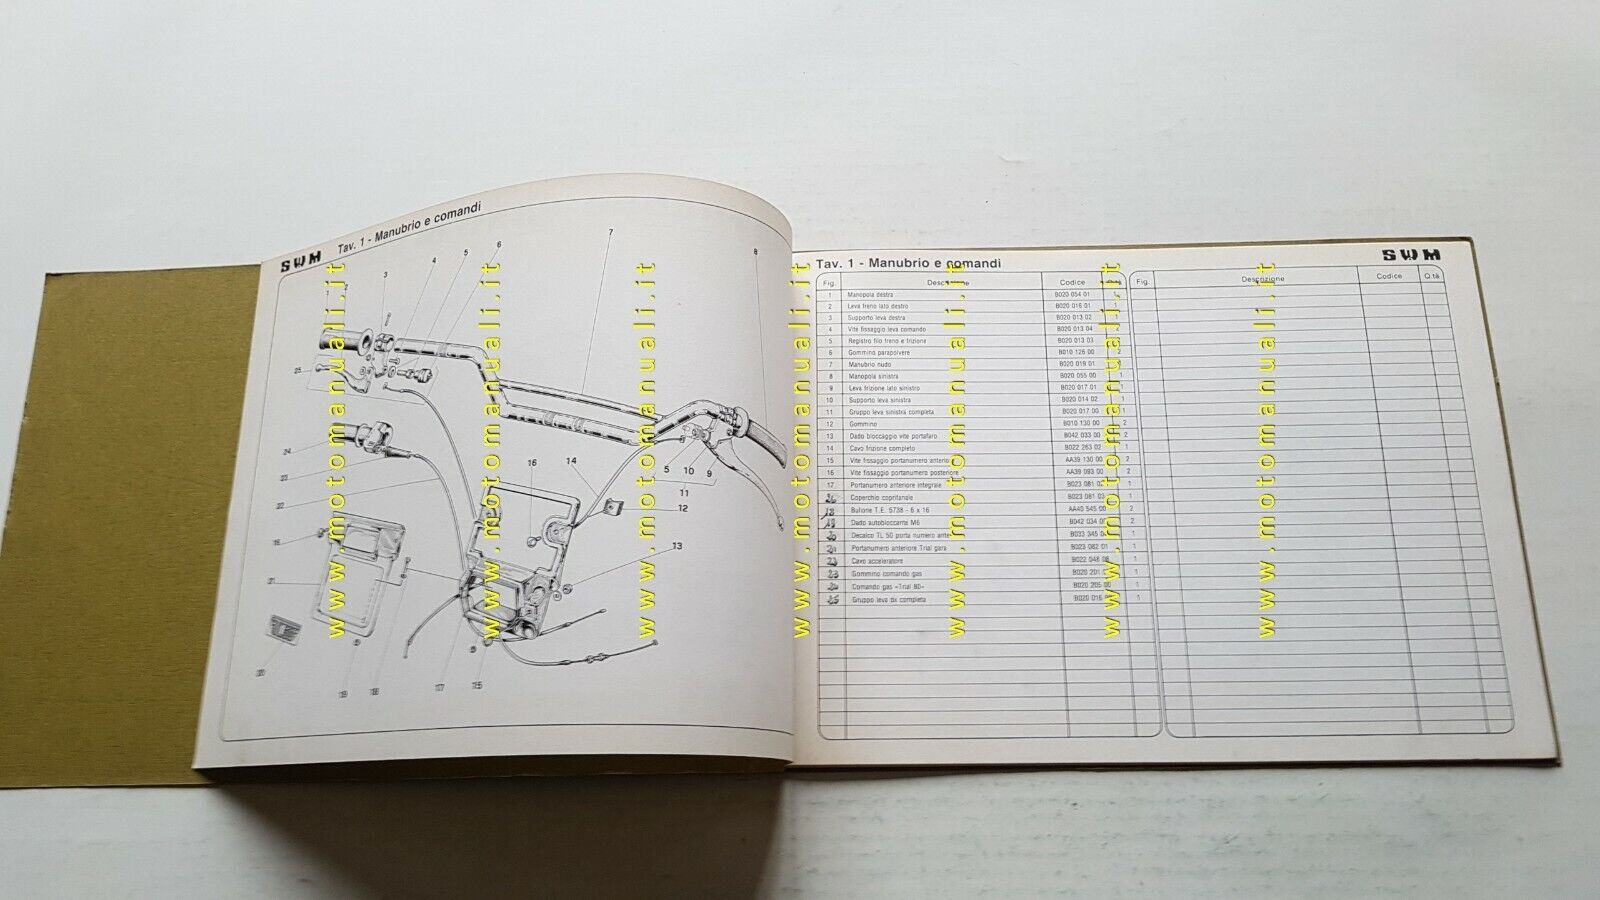 SWM Tav. 1 - Manubrio e comandi
1 2 3 4 5 6 7 8
25
24
23
22
21
20
19
18
17
15
16 14
5 10 9
11
12
13
SWM
Tav. 1 - Manubrio e comandi
Fig. Descrizione Codice Q.tà Fig. Descrizione Codice Q.tà
1 Manopola destra B020 054 01 1
2 Leva freno lato destro B020 016 01 1
3 Supporto leva destra B020 013 02 1
4 Vite fissaggio leva comando B020 013 04 2
5 Registro filo freno e frizione B020 013 03
6 Gommino parapolvere B010 126 00 2
7 Manubrio nudo B020 019 01
8 Manopola sinistra B020 055 00 1
9 Leva frizione lato sinistro B020 017 01 1
10 Supporto leva sinistra B020 014 02 1
11 Gruppo leva sinistra completa B020 017 00 1
12 Gommino B010 130 00 2
13 Dado bloccaggio vite portafaro B042 033 00 2
14 Cavo frizione completo B022 263 02 1
15 Vite fissaggio portanumero anteriore AA39 130 00 2
16 Vite fissaggio portanumero posteriore AA39 093 00 2
17 Portanumero anteriore integrale B023 081 02 1
Coperchio coprifanale B023 081 03 1
18 Bullone T.E. 5738 - 6 x 16 AA40 545 00 2
19 Dado autobloccante M6 B042 034 00 2
20 Decalco TL 50 porta numero ante B033 345 1
21 Portanumero anteriore Trial gara B023 082 01 1
Cavo acceleratore B022 048 1
23 Gommino comando gas B020 201 1
Comando gas «Trial 80» B020 205 00 1
25 Gruppo leva dx completa B020 016 1
www.motomanuali.it
www.motomanuali.it
www.motomanuali.it
www.motomanuali.it
www.motomanuali.it
www.motomanuali.it
www.motomanuali.it